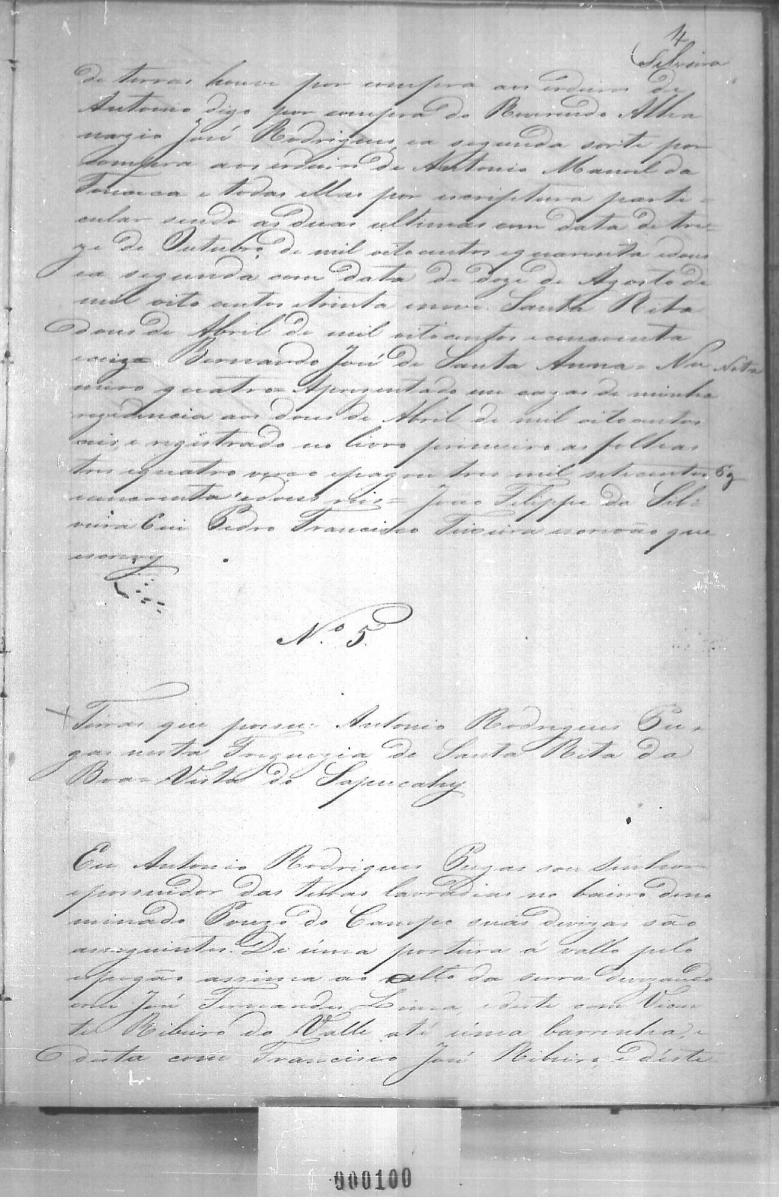 4
Silveira
de terras houve por compra aos erdeiros de
Antonio digo por compra do Reverendo Atha
nazio José Rodrigues, ea segunda sorte por
compra aos erdeiros de Antonio Manoel da
Fonceca e todas ellas por escriptura parti-
cular sendo as duas ultimas com data de tre-
ze de Outubro de mil oitocentos equarenta edous
ea segunda com data de doze de Agosto de
mil oito centos etrinta enove. Santa Rita
dous de Abril de mil oitocentos ecincoenta
e Bernardo José de Santa Anna = Nu
mero quatro = Apresentado em cazas de minha
rezidencia aos dous de Abril de mil oitocentos
e registrado no livro primeiro as folhas
tres equatro verço epagou tres mil setecentos
cincoenta edous reis = João Filippe da Sil-
veira Eu Pedro Francisco Teixeira escrivão que
escrevy
N.º 5.
Terras que possue Antonio Rodrigues Pu-
gas nesta Freguezia de Santa Rita da
Boa-Vista do Sapucahy
Eu Antonio Rodrigues Pugas sou Senhor
epossuidor das terras lavradias no bairro deno
minado Pouzo do Campo suas divizas são
asseguintes. De úma porteira á vallo pelo
espigão assima ao alto da serra divizando
com José Fernandes Lima, edeste com Vicen
te Ribeiro do Valle até úma barrinha, e
desta com Francisco José Ribeiro, e déste
000100